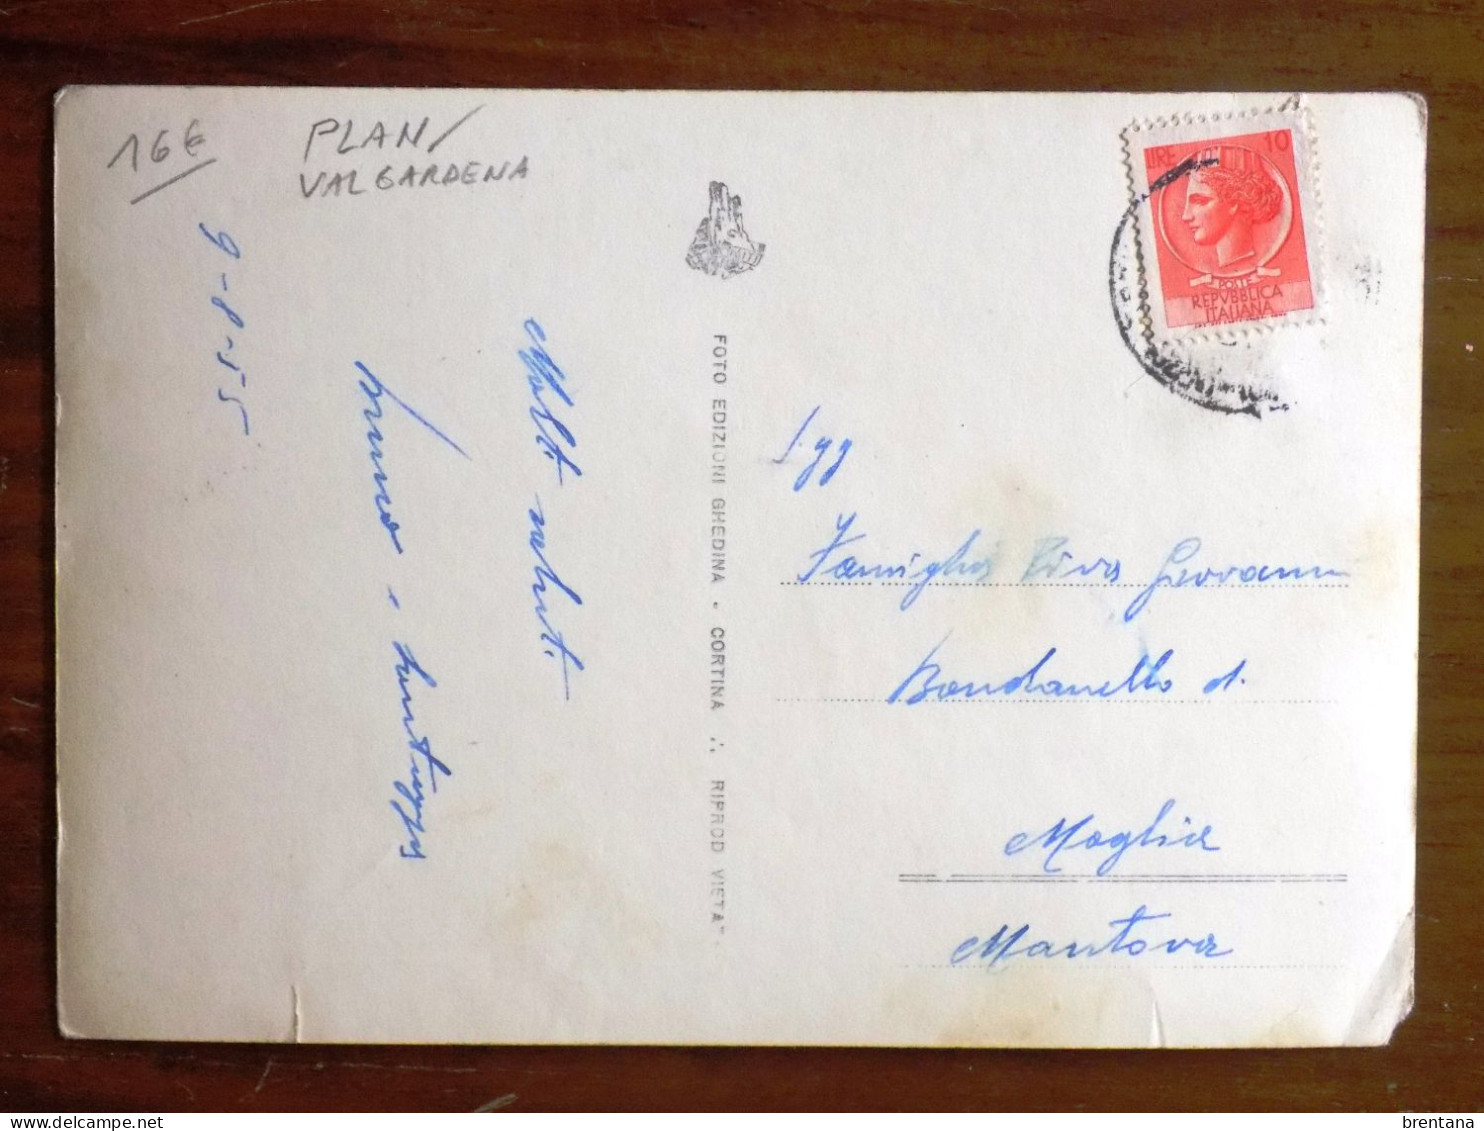 16€
PLAN/
VALGARDENA
9-8-55
Molt. salut.
Bruno e
FOTO EDIZIONI GHEDINA • CORTINA ∴ RIPROD VIETA"
LIRE 10
POSTE
REPVBBLICA
ITALIANA
Sgg
Famiglia Riva Giovanni
Bondanello d.
Moglia
Mantova
brentana